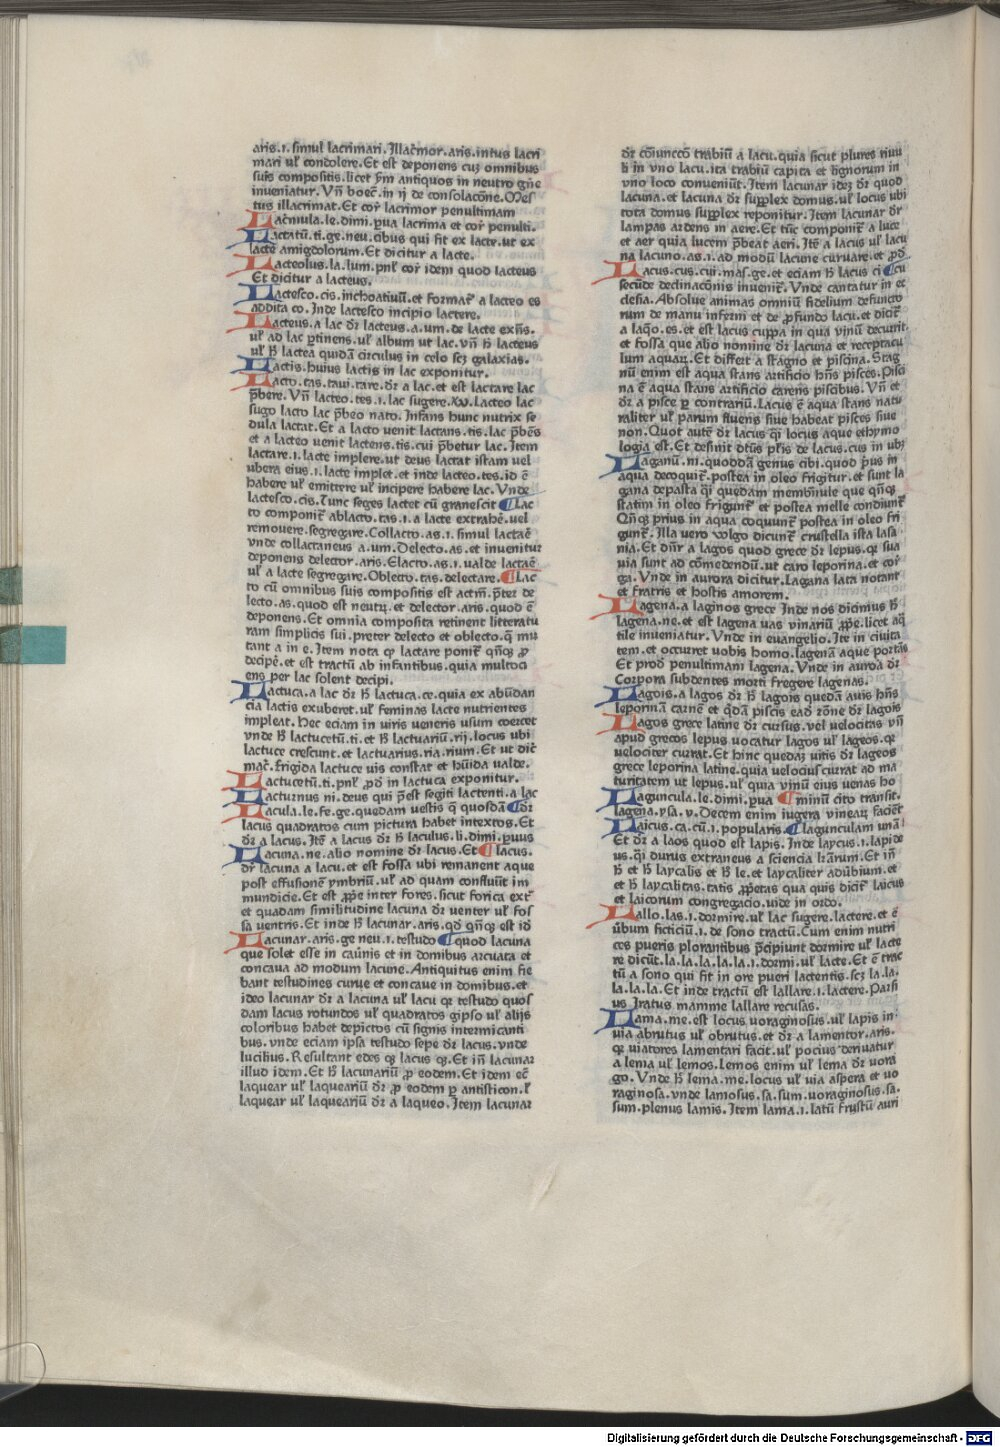 aris.ı.simul lacrimari.Illac̄mor.aris.intus lacri
mari ul᷑ condolere.Et est deponens cuʒ omnibus
suis compositis.licet s̄m antiquos in neutro gn̄e
inueniatur.Vn̄ boec̄.in ıȷ de consolac̄one.Mes
tus illacrimat.Et cor᷑ lacrimor penultimam
Lac̄mula.le.dimi.p̱ua lacrima et cor᷑ penulti.
Lactatū.ti.ge.neu.cibus qui fit ex lacte.ut ex
lacte amigdolorum.Et dicitur a lacte.
Lacteolus.la.lum.pnl᷑ cor᷑ idem quod lacteus
Et dicitur a lacteus.
Lactesco.cis.inchoatiuū.et format᷑ a lacteo es
addita co.Inde lactesco incipio lactere.
Lacteus.a lac dr̄ lacteus.a.um.de lacte exn̄s.
ul᷑ ad lac ꝑtinens.ul᷑ album ut lac.vn̄ h̄ lacteus
ul᷑ h̄ lactea quidā circulus in celo scʒ galaxias.
Lactis.huius lactis in lac exponitur.
Lacto.tas.taui.tare.dr̄ a lac.et est lactare lac
p̄bere.Vn̄ lacteo.tes.ı.lac sugere.Xp̄.Lacteo lac
sugo lacto lac p̄beo nato.Infans hunc nutrix se
dula lactat.Et a lacto uenit lactans.tis.lac p̄bēs
et a lacteo uenit lactens.tis.cui p̄betur lac.Item
lactare.ı.lacte implere.ut deus lactat istam uel
ubera eius.ı.lacte implet.et inde lacteo.tes.id ē
habere ul᷑ emittere ul᷑ incipere habere lac.Vnde
lactesco.cis.Tunc seges lactet cū granescit ¶Lac
to componit᷑ ablacto.tas.ı.a lacte extrahē.uel
remouere.segregare.Collacto.as.ı.simul lactaē
vnde collactaneus a.um.Delecto.as.et inuenitur
deponens delector.aris.Elacto.as.ı.ualde lactaē
ul᷑ a lacte segregare.Oblecto.tas.delectare.¶Lac
to cū omnibus suis compositis est actiū.p̄ter de
lecto.as.quod est neutꝝ.et delector.aris.quod ē
deponens.Et omnia composita retinent litteratu
ram simplicis sui.preter delecto et oblecto.q̄ mu
tant a in e.Item nota ꝙ lactare ponit᷑ qn̄qꝫ ꝓ
decipē.et est tractū ab infantibus.quia multoci
ens per lac solent decipi.
Lactuca.a lac dr̄ h̄ lactuca.ce.quia ex abūdan
cia lactis exuberet.ul᷑ feminas lacte nutrientes
impleat.Hec eciam in uiris ueneris usum coercet
vnde h̄ lactucetū.ti.et h̄ lactuariū.rıȷ.locus ubi
lactuce crescunt.et lactuarius.ria.rium.Et ut dic̄
mac̄.frigida lactuce uis constat et hūida ualde.
Lactucetū.ti.pnl᷑ ꝓd᷑ in lactuca exponitur.
Lacturnus ni.deus qui p̄est segiti lactenti.a lac
Lacula.le.fe.ge.quedam uestis q̄ quosdā ¶dr̄
lacus quadratos cum pictura habet intextos.Et
dr̄ a lacus.Itē a lacus dr̄ h̄ laculus.li.dimi.p̱uus
Lacuna.ne.alio nomine dr̄ lacus.Et ¶lacus.
dr̄ lacuna a lacu.et est fossa ubi remanent aque
post effusionē ymbriū.ul᷑ ad quam confluūt im
mundicie.Et est ꝓp̄e inter fores.sicut forica ext᷑
et quadam similitudine lacuna dr̄ uenter ul᷑ fos
sa uentris.Et inde h̄ lacunar.aris.qd᷑ qn̄qꝫ est id
Lacunar.aris.ge neu.ı.testudo ¶quod lacuna
que solet esse in cauīnis et in domibus arcuata et
concaua ad modum lacune.Antiquitus enim fie
bant testudines curue et concaue in domibus.et
ideo lacunar dr̄ a lacuna ul᷑ lacu qꝛ testudo quos
dam lacus rotundos ul᷑ quadratos gipso ul᷑ alijs
coloribus habet depictos cū signis intermicanti
bus.vnde eciam ipsa testudo sepe dr̄ lacus.vnde
lucibus.Resultant edes qꝫ lacus qꝫ.Et in᷑ lacunar
illud idem.Et h̄ lacunariū ꝓ eodem.Et idem ec̄
laquear ul᷑ laqueariū dr̄ ꝓ eodem ꝑ antisticon.l᷑
laquear ul᷑ laqueariū dr̄ a laqueo.Item lacunar
dr̄ cōiuncc̄o trabiū a lacu.quia sicut plures riuu
li in vno lacu.ita trabiū capita et lignorum in
vno loco conueniūt.Item lacunar ideʒ dr̄ quod
lacuna.et lacuna dr̄ suppl̄ex domus.ul᷑ locus ubi
tota domus suppl̄ex reponitur.Item lacunar dr̄
lampas ardens in aere.Et tūc componit᷑ a luce
et aer quia lucem p̄beat aeri.Itē a lacus ul᷑ lacu
na lacuno.as.ı.ad modū lacune curuare.et ꝓd᷑.
Lacus.cus.cui.mas.ge.et eciam h̄ lacus ci ¶cu
secūde declinac̄onis inuenit᷑.Vnde cantatur in ec
clesia.Absolue animas omniū fidelium defuncto
rum de manu inferni et de ꝓfundo lacu.et dicit᷑
a laqo.es.et est lacus cuppa in qua vinū decurrit.
et fossa que alio nomine dr̄ lacuna et receptacu
lum aquaꝝ.Et differt a stagno et piscina.Stag
nū enim est aqua stans artificio hn̄s pisces.Pisci
na ē aqua stans artificio carens piscibus.Vn̄ et
dr̄ a pisce ꝑ contrariū.Lacus ē aqua stans natu
raliter ul᷑ parum fluens siue habeat pisces siue
non.Quot autē dr̄ lacus q̄i locus aque ethymo
logia est.Et desinit dt̄us pl̄is de lacus.cus in ubʒ
Laganū.ni.quoddā genus cibi.quod p̄us in
aqua decoquit᷑.postea in oleo frigitur.et sunt la
gana depasta q̄i quedam membīnule que qn̄qꝫ
statim in oleo frigunt᷑ et postea melle condiunt᷑
Qn̄qꝫ prius in aqua coquunt᷑ postea in oleo fri
gunt᷑.Illa vero volgo dicunt᷑ crustella ista lasa
nia.Et dn̄r a lagos quod grece dr̄ lepus.qꝛ sua
uia sunt ad cōmedendū.ut caro leporina.et cor᷑
ga.Vnde in aurora dicitur.Lagana lata notant
et fratris et hostis amorem.
Lagena.a laginos grece Inde nos dicimus h̄
lagena.ne.et est lagena uas vinariū ꝓp̄e.licet aq̄
tile inueniatur.Vnde in euangelio.Ite in ciuita
tem.et occurret uobis homo.lagenā aque portās
Et prod᷑ penultimani lagena.Vnde in auroā dr̄
Corpora subdentes morti fregere lagenas.
Lagois.a lagos dr̄ h̄ lagois quedā auis hn̄s
leporinā carnē et q̄dā piscis ead᷑ rōne dr̄ lagois
Lagos grece latine dr̄ cursus.vel uelocitas vn̄
apud grecos lepus uocatur lagos ul᷑ lageos.qꝛ
uelociter currat.Et hinc quedaʒ uitis dr̄ lageos
grece leporina latine.quia uelocius currat ad ma
turitatem ut lepus.ul᷑ quia vinū eius uenas ho
Laguncula.le.dimi.p̱ua ¶minū cito transit.
lagena.ysa.v.Decem enim iugera vineaꝝ faciēt
Laicus.ca.cū.ı.popularis.¶lagunculam unā
Et dr̄ a laos quod est lapis.Inde laycus.ı.lapide
us.q̄i durus extraneus a sciencia lr̄arum.Et in᷑
h̄ et h̄ laycalis et h̄ le.et laycaliter adūbium.et
h̄ laycalitas.tatis ꝓp̄etas qua quis dicit᷑ laicus
et laicorum congregacio.uide in ordo.
Lallo.las.ı.dormire.ul᷑ lac sugere.lactere.et ē
ūbum ficticiū.ı.de sono tractū.Cum enim nutri
ces pueris plorantibus p̄cipiunt dormire ul᷑ lacte
re dicūt.la.la.la.la.la.ı.dormi.ul᷑ lacte.Et ē trac
tū a sono qui fit in ore pueri lactentis.scʒ la.la.
la.la.la.Et inde tractū est lallare.ı.lactere.Parsi
us Iratus mamme lallare recusas.
Lama.me.est locus uoraginosus.ul᷑ lapis in
via abrutus ul᷑ obrutus.et dr̄ a lamentor.aris.
qꝛ uiatores lamentari facit.ul᷑ pocius deriuatur
a lema ul᷑ lemos.Lemos enim ul᷑ lema dr̄ uora
go.Vnde h̄ lema.me.locus ul᷑ uia aspera et uo
raginosa.vnde lamosus.sa.sum.uoraginosus.sa.
sum.plenus lamis.Item lama.ı.latū frustū auri
Digitalisierung gefördert durch die Deutsche Forschungsgemeinschaft - DFG